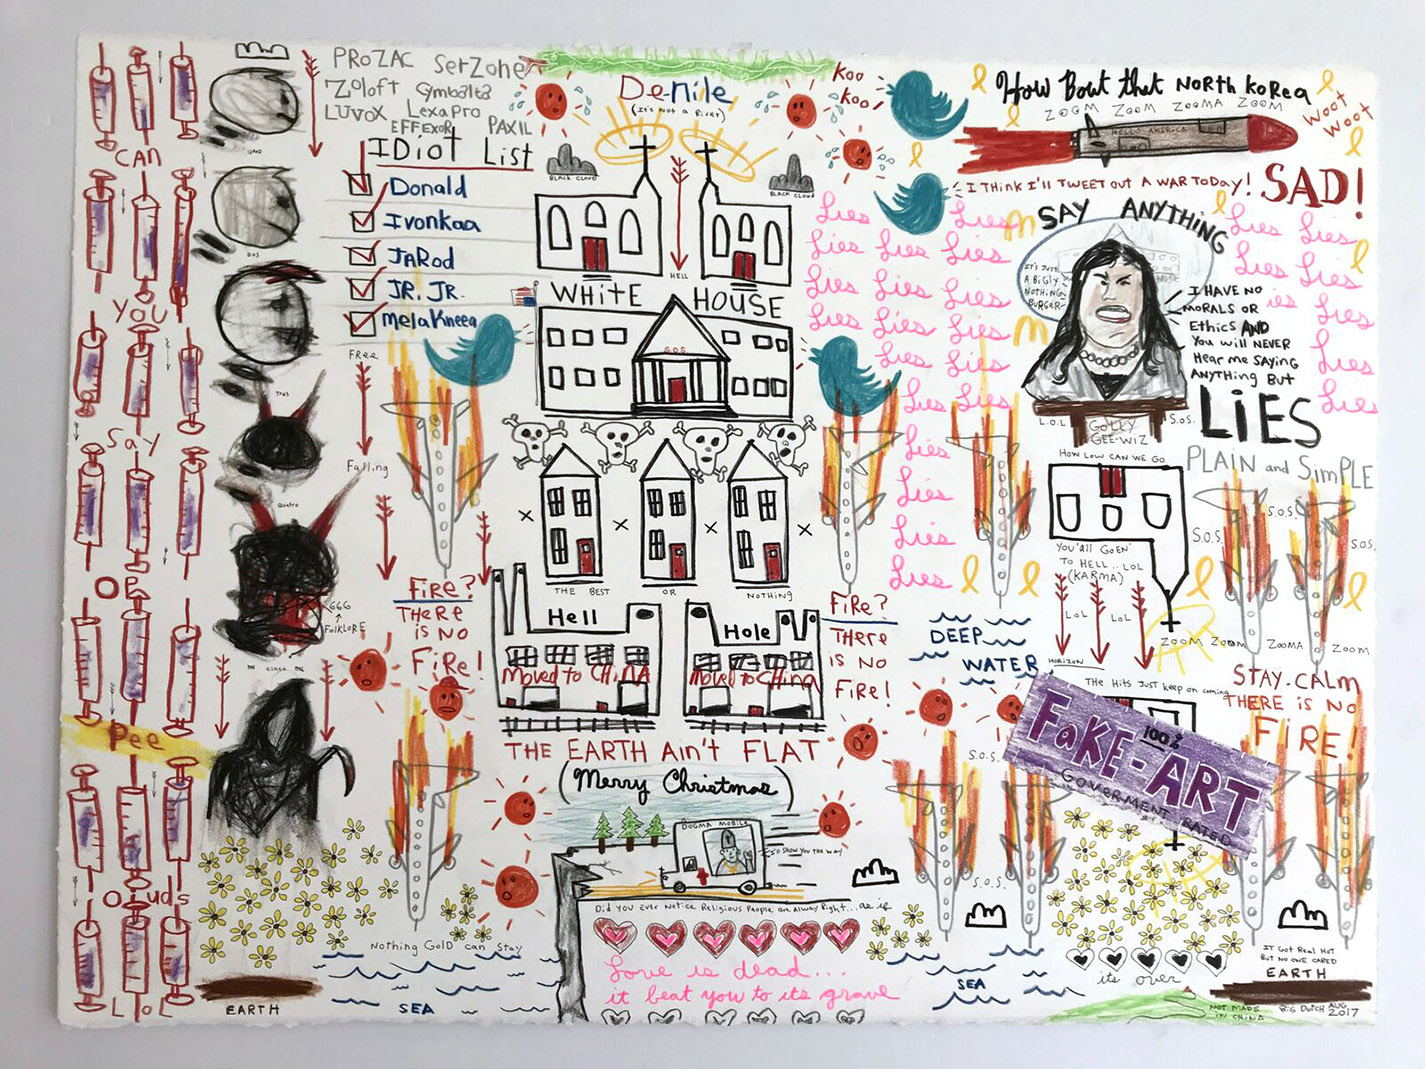 PROZAC SerZone
Zoloft Cymbalta
LUVOX Lexapro
EFFEXOR PAXIL
IDiot List
Donald
Ivonkaa
JARod
JR. JR.
MelaKneea
CAN
You
Say
OP
Pee
Ouds
LOL
UNO
DOS
Tres
Quatro
cinco
666
FOLKLORE
FRee
Falling
FiRe?
THeRe
iS NO
FiRe!
De-Nile
(It's not a River)
BLACK CLOUD
BLACK CLOUD
HELL
WHITE HOUSE
S.O.S
THE BEST OR NOTHING
Hell
Hole
Moved to CHINA
Moved to China
THE EARTH Ain't FLAT
(Merry Christmas)
DOGMA MOBILE
I'll SHOW YOU THE WAY
Did you Ever Notice Religious People are Always Right... as if
Love is dead...
it beat you to its grave
Nothing Gold can Stay
EARTH
SEA
Koo
Koo
How Bout that NORTH KoRea
ZOOM ZOOM ZOOMA ZOOM
Woot
Woot
HELLO AMERICA
I THINK I'LL TWEET OUT A WAR TODAY! SAD!
SAY ANYTHING
IT'S JUST
A BIGLY
NOTHING
BURGER
I HAVE NO
MORALS OR
Ethics AND
You will NEVER
Hear me SAYING
ANYTHING BuT
LiES
PLAIN and SimPLE
Lies Lies Lies
Lies Lies Lies
Lies Lies Lies
Lies Lies Lies
Lies Lies
Lies Lies
Lies
Lies
Lies
Lies
Lies Lies
Lies Lies
ies Lies
Lies
Lies
L.O.L
GOLLY
GEE-WIZ
S.O.S.
HOW LOW CAN WE GO
YOU'all GOEN'
TO HELL.. LOL
(KARMA)
LOL
LOL
HORIZON
S.O.S.
S.O.S.
S.O.S.
ZOOM ZOOM ZOOMA ZOOM
FiRe?
THeRe
iS NO
FiRe!
DEEP
WATER
The Hits Just keep on coming
STAY. CALm
THERE is NO
FiRE!
FaKE-ART
100%
GOVERMENT RATED
S.O.S.
S.O.S.
it's over
IT Got Real Hot
BUT NO ONE CARED
EARTH
SEA
NOT MADE
IN CHINA
BiG DUTCH AUG
2017